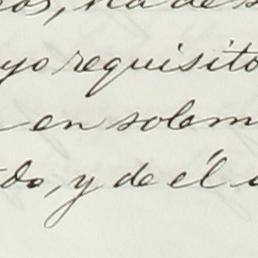 os, ha de s
yo requisito
en solem
do, y de él